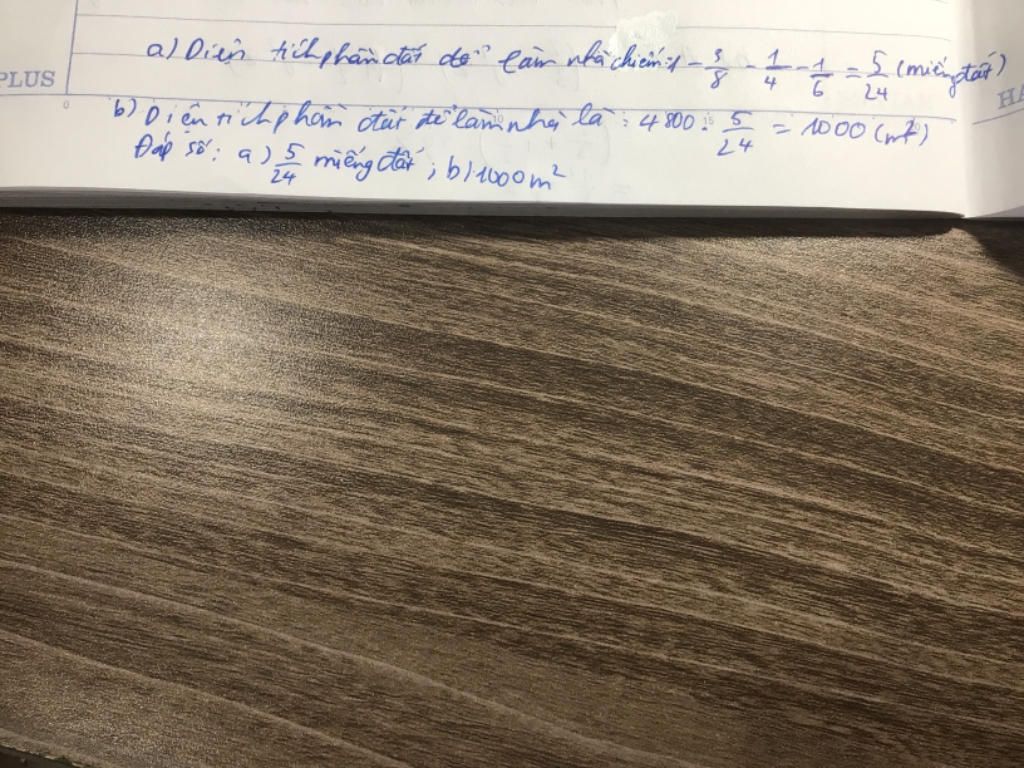 a) Diện tích phần đất để làm nhà chiếm: 1 - 3/8 - 1/4 - 1/6 = 5/24 (miếng đất)
PLUS
HA
0
b) Diện tích phần đất để làm nhà là: 4800 . 5/24 = 1000 (m²)
Đáp số: a) 5/24 miếng đất ; b) 1000 m²